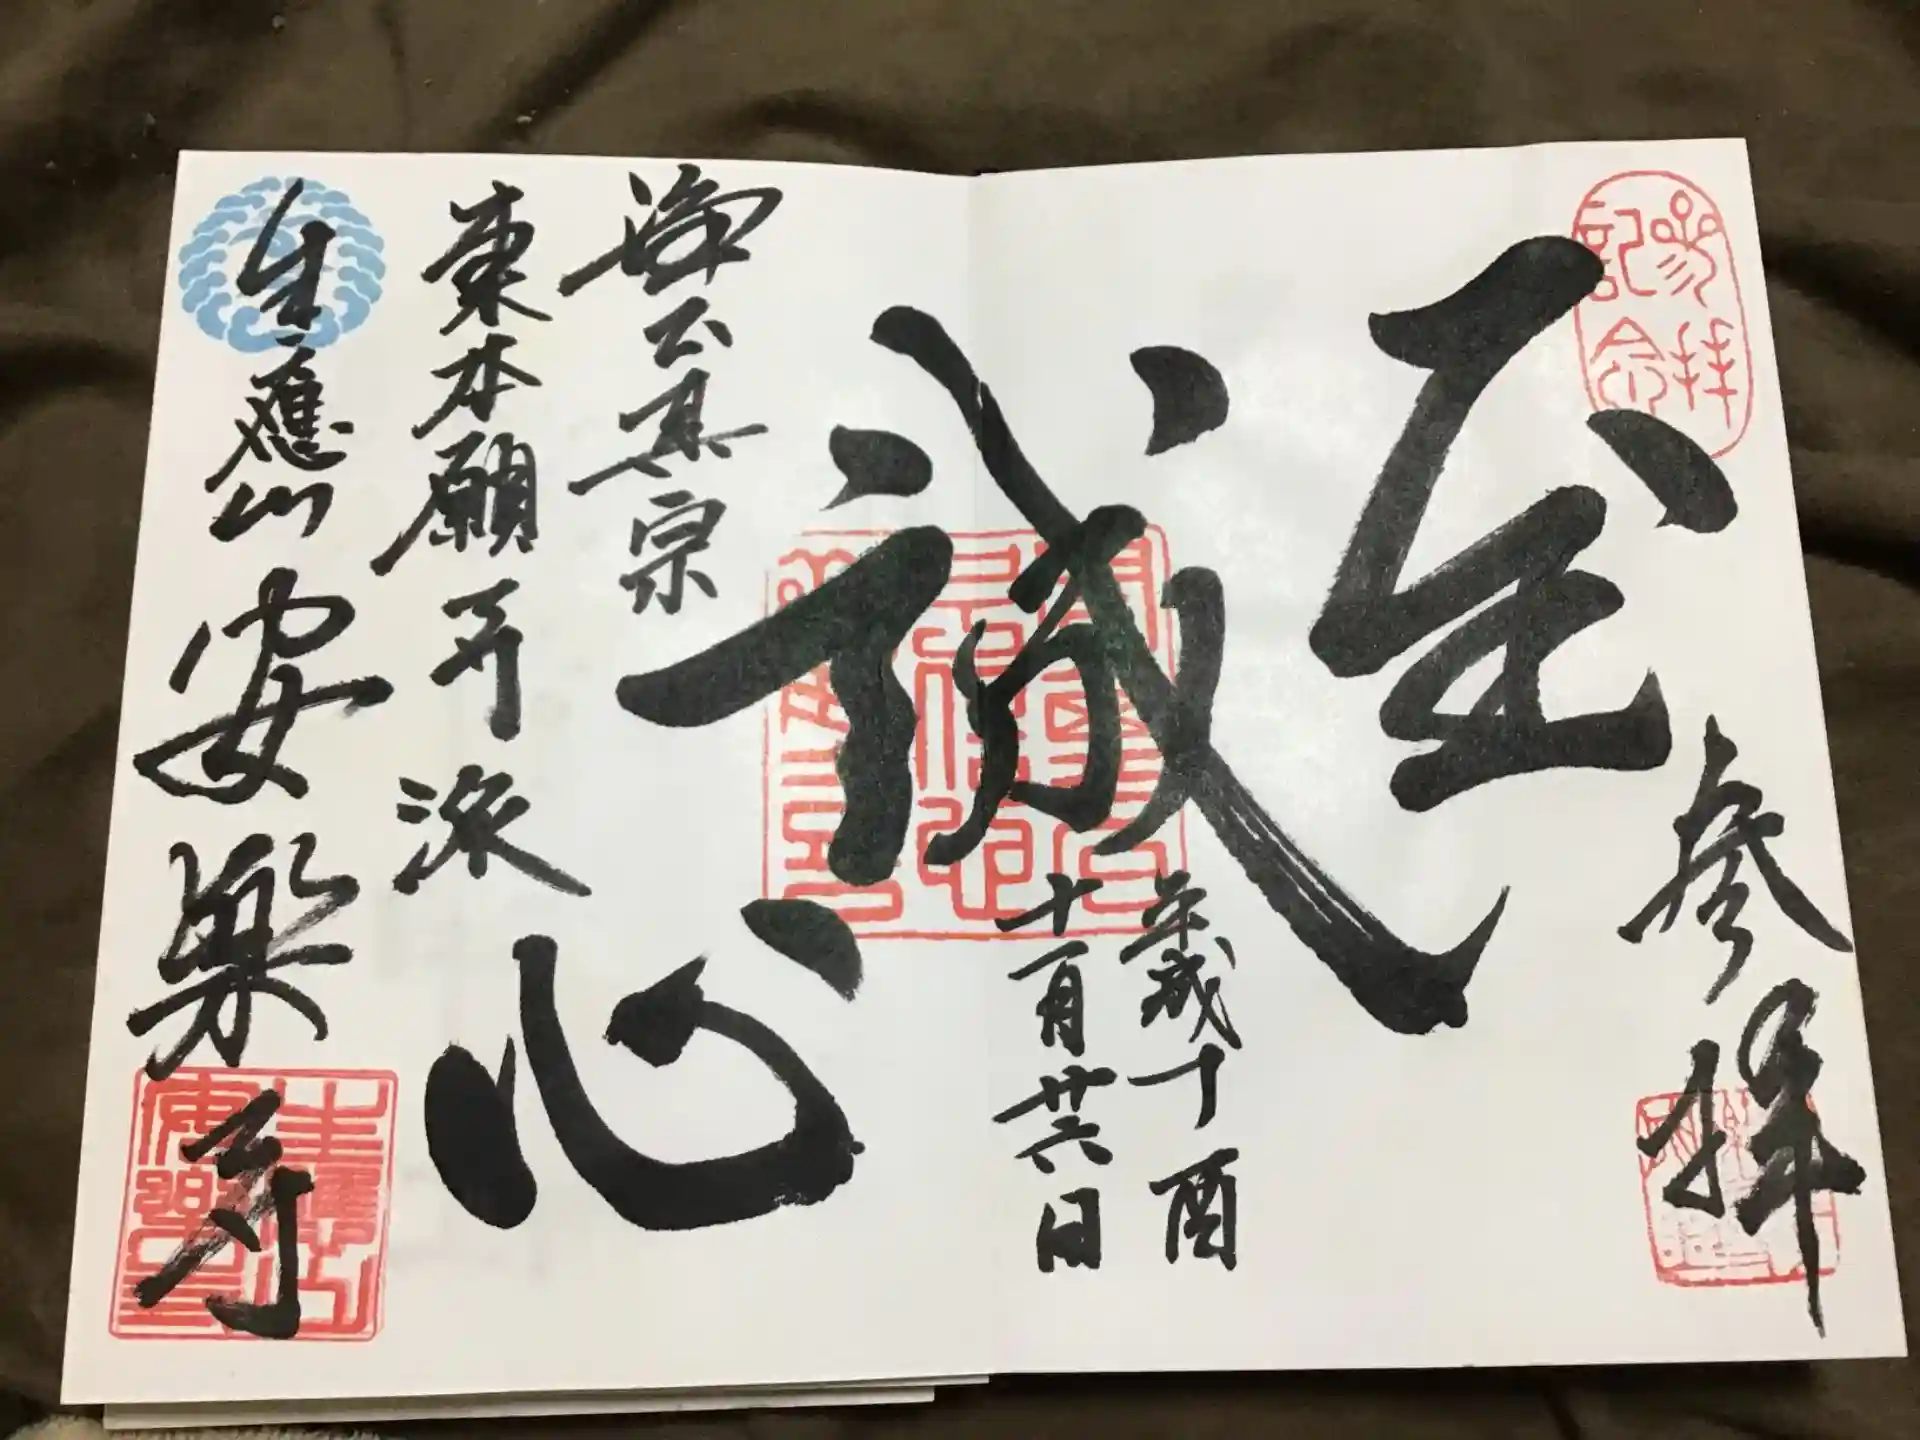 参拝記念
参拝
至誠心
十月廿六日
浄土真宗
東本願寺派
生應山 安楽寺